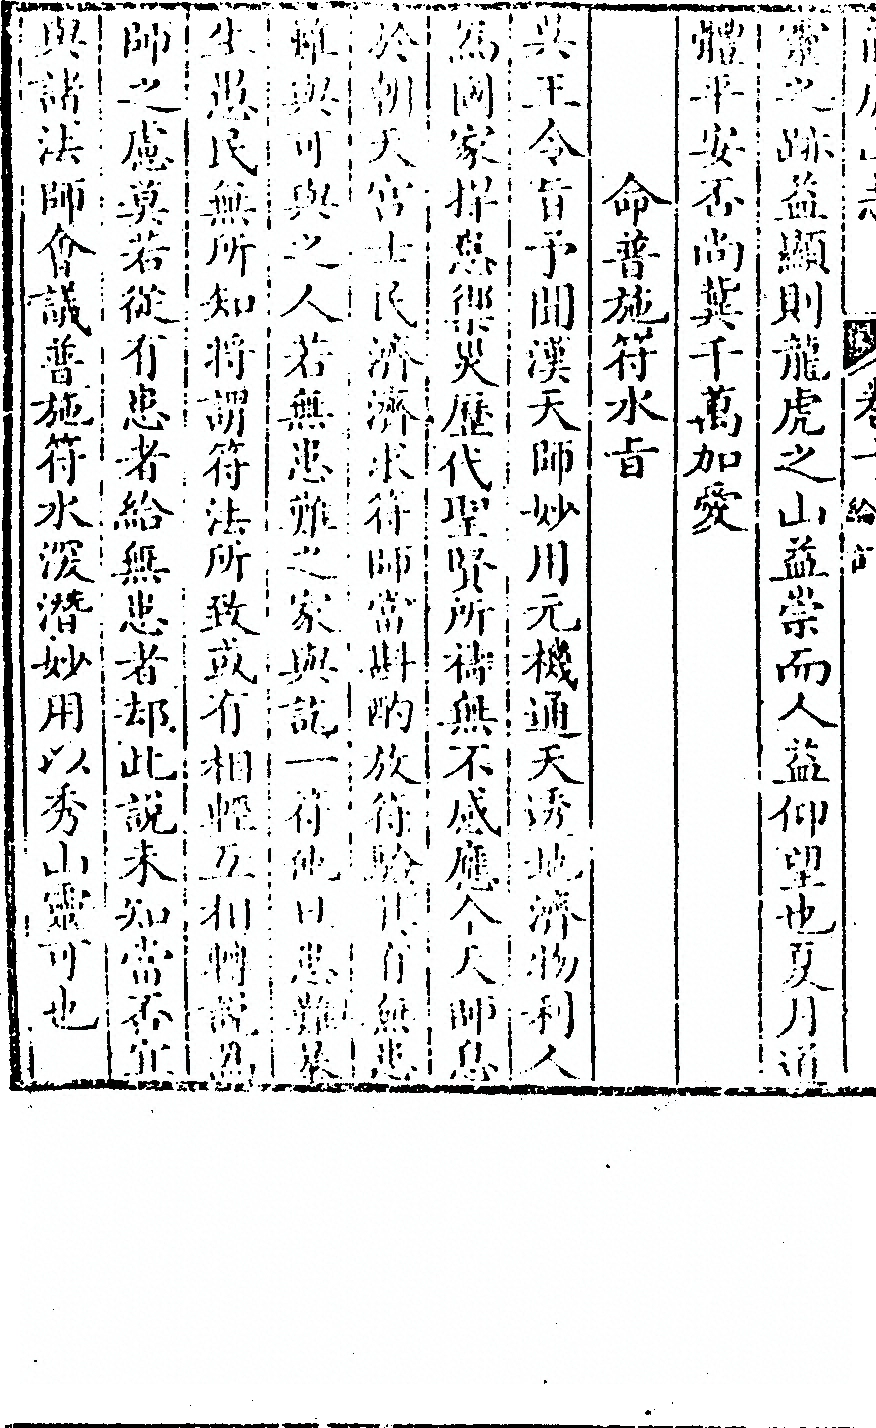 卷十
靈之跡益顯則龍虎之山益崇而人益仰望也夏月道
體平安否尚冀千萬加愛
命普施符水旨
吳王令旨予聞漢天師妙用元機通天透地濟物利人
為國家捍患禦災歷代聖賢所禱無不感應今天師息
於朝天宮士民濟濟求符師當斟酌放符驗其有無患
難與可與之人若無患難之家與訖一符他日患難
生愚民無所知將謂符法所致或有相輕互相轉說為
師之慮莫若從有患者給無患者却此說未知當否宜
與諸法師會議普施符水深潛妙用以秀山靈可也